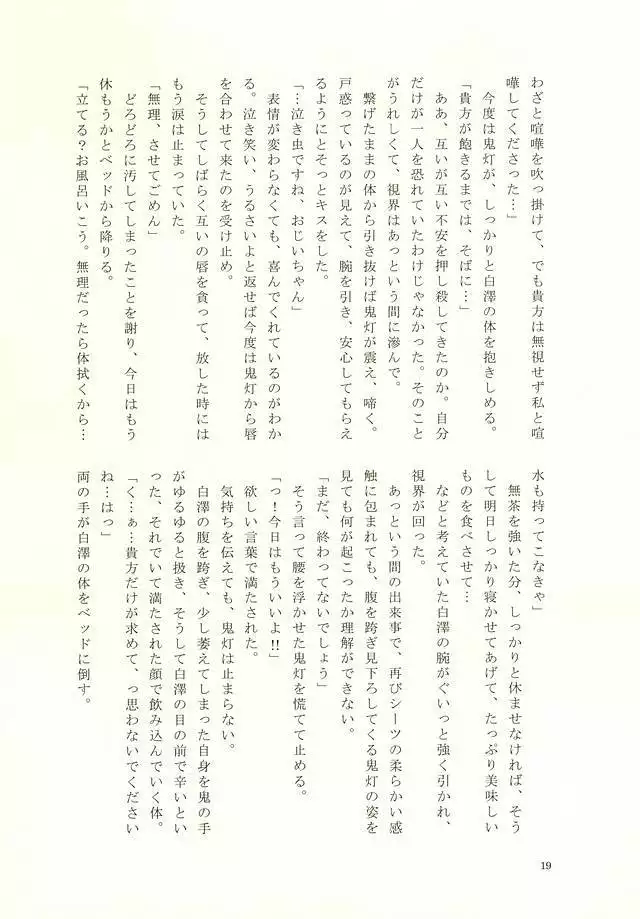 わざと喧嘩を吹っ掛けて、でも貴方は無視せず私と喧
嘩してくださった…」
今度は鬼灯が、しっかりと白澤の体を抱きしめる。
「貴方が飽きるまでは、そばに…」
ああ、互いが互い不安を押し殺してきたのか。自分
だけが一人を恐れていたわけじゃなかった。そのこと
がうれしくて、視界はあっという間に滲んで。
繋げたままの体から引き抜けば鬼灯が震え、啼く。
戸惑っているのが見えて、腕を引き、安心してもらえ
るようにとそっとキスをした。
「…泣き虫ですね、おじいちゃん」
表情が変わらなくても、喜んでくれているのがわか
る。泣き笑い、うるさいよと返せば今度は鬼灯から唇
を合わせて来たのを受け止め。
そうしてしばらく互いの唇を貪って、放した時には
もう涙は止まっていた。
「無理、させてごめん」
どろどろに汚してしまったことを謝り、今日はもう
休もうかとベッドから降りる。
「立てる？お風呂いこう。無理だったら体拭くから…
水も持ってこなきゃ」
無茶を強いた分、しっかりと休ませなければ、そう
して明日しっかり寝かせてあげて、たっぷり美味しい
ものを食べさせて…
などと考えていた白澤の腕がぐいっと強く引かれ、
視界が回った。
あっという間の出来事で、再びシーツの柔らかい感
触に包まれても、腹を跨ぎ見下ろしてくる鬼灯の姿を
見ても何が起こったか理解ができない。
「まだ、終わってないでしょう」
そう言って腰を浮かせた鬼灯を慌てて止める。
「っ！今日はもういいよ!!」
欲しい言葉で満たされた。
気持ちを伝えても、鬼灯は止まらない。
白澤の腹を跨ぎ、少し萎えてしまった自身を鬼の手
がゆるゆると扱き、そうして白澤の目の前で辛いとい
った、それでいて満たされた顔で飲み込んでいく体。
「く…ぁ…貴方だけが求めて、っ思わないでください
ね…はっ」
両の手が白澤の体をベッドに倒す。
19